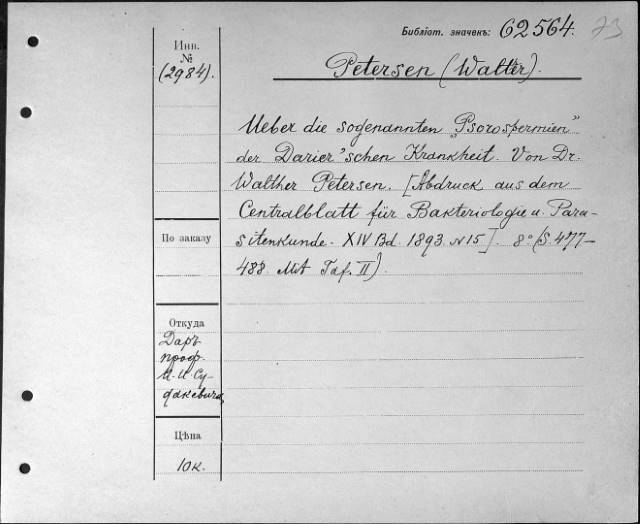 Библіот. значекъ: 62564. 73
Инв.
№
(2984).
Petersen (Walther).
Ueber die sogenannten „Psorospermien"
der Darier'schen Krankheit. Von Dr.
Walther Petersen. [Abdruck aus dem
Centralblatt für Bakteriologie u. Para-
sitenkunde. XIV Bd. 1893. N 15]. 8° (S. 477–
488. Mit Taf. II).
По заказу
Откуда
Даръ
проф.
И. И. Су-
дакевича
Цѣна
10 к.